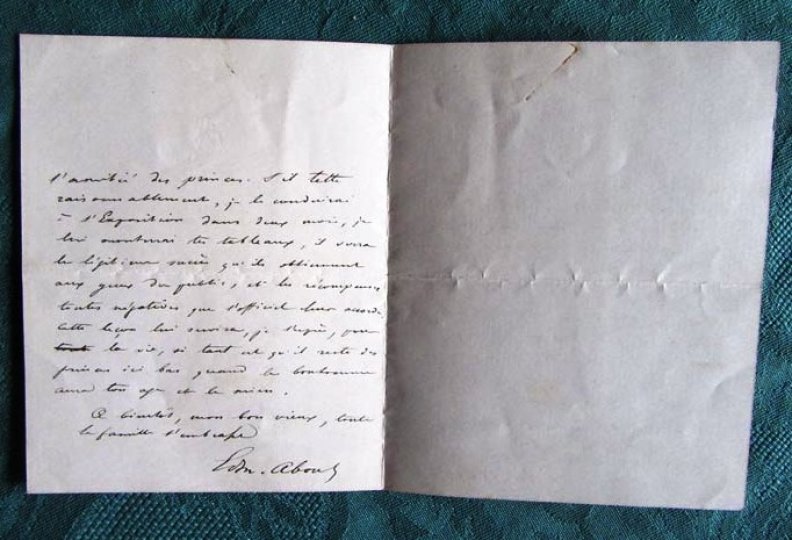 l'amitié des princes. S'il tette
raisonnablement, je le conduirai
à l'Exposition dans deux mois, je
lui montrerai tes tableaux, il verra
le légitime succès qu'ils obtiennent
aux yeux du public, et les récompenses
toutes négatives que l'officiel leur accorde.
Cette leçon lui servira, je l'espère, pour
toute la vie, si tant est qu'il reste des
princes ici bas quand le bonhomme
aura ton age et le mien.
A bientôt, mon bon vieux, toute
la famille t'embrasse
Edm. About